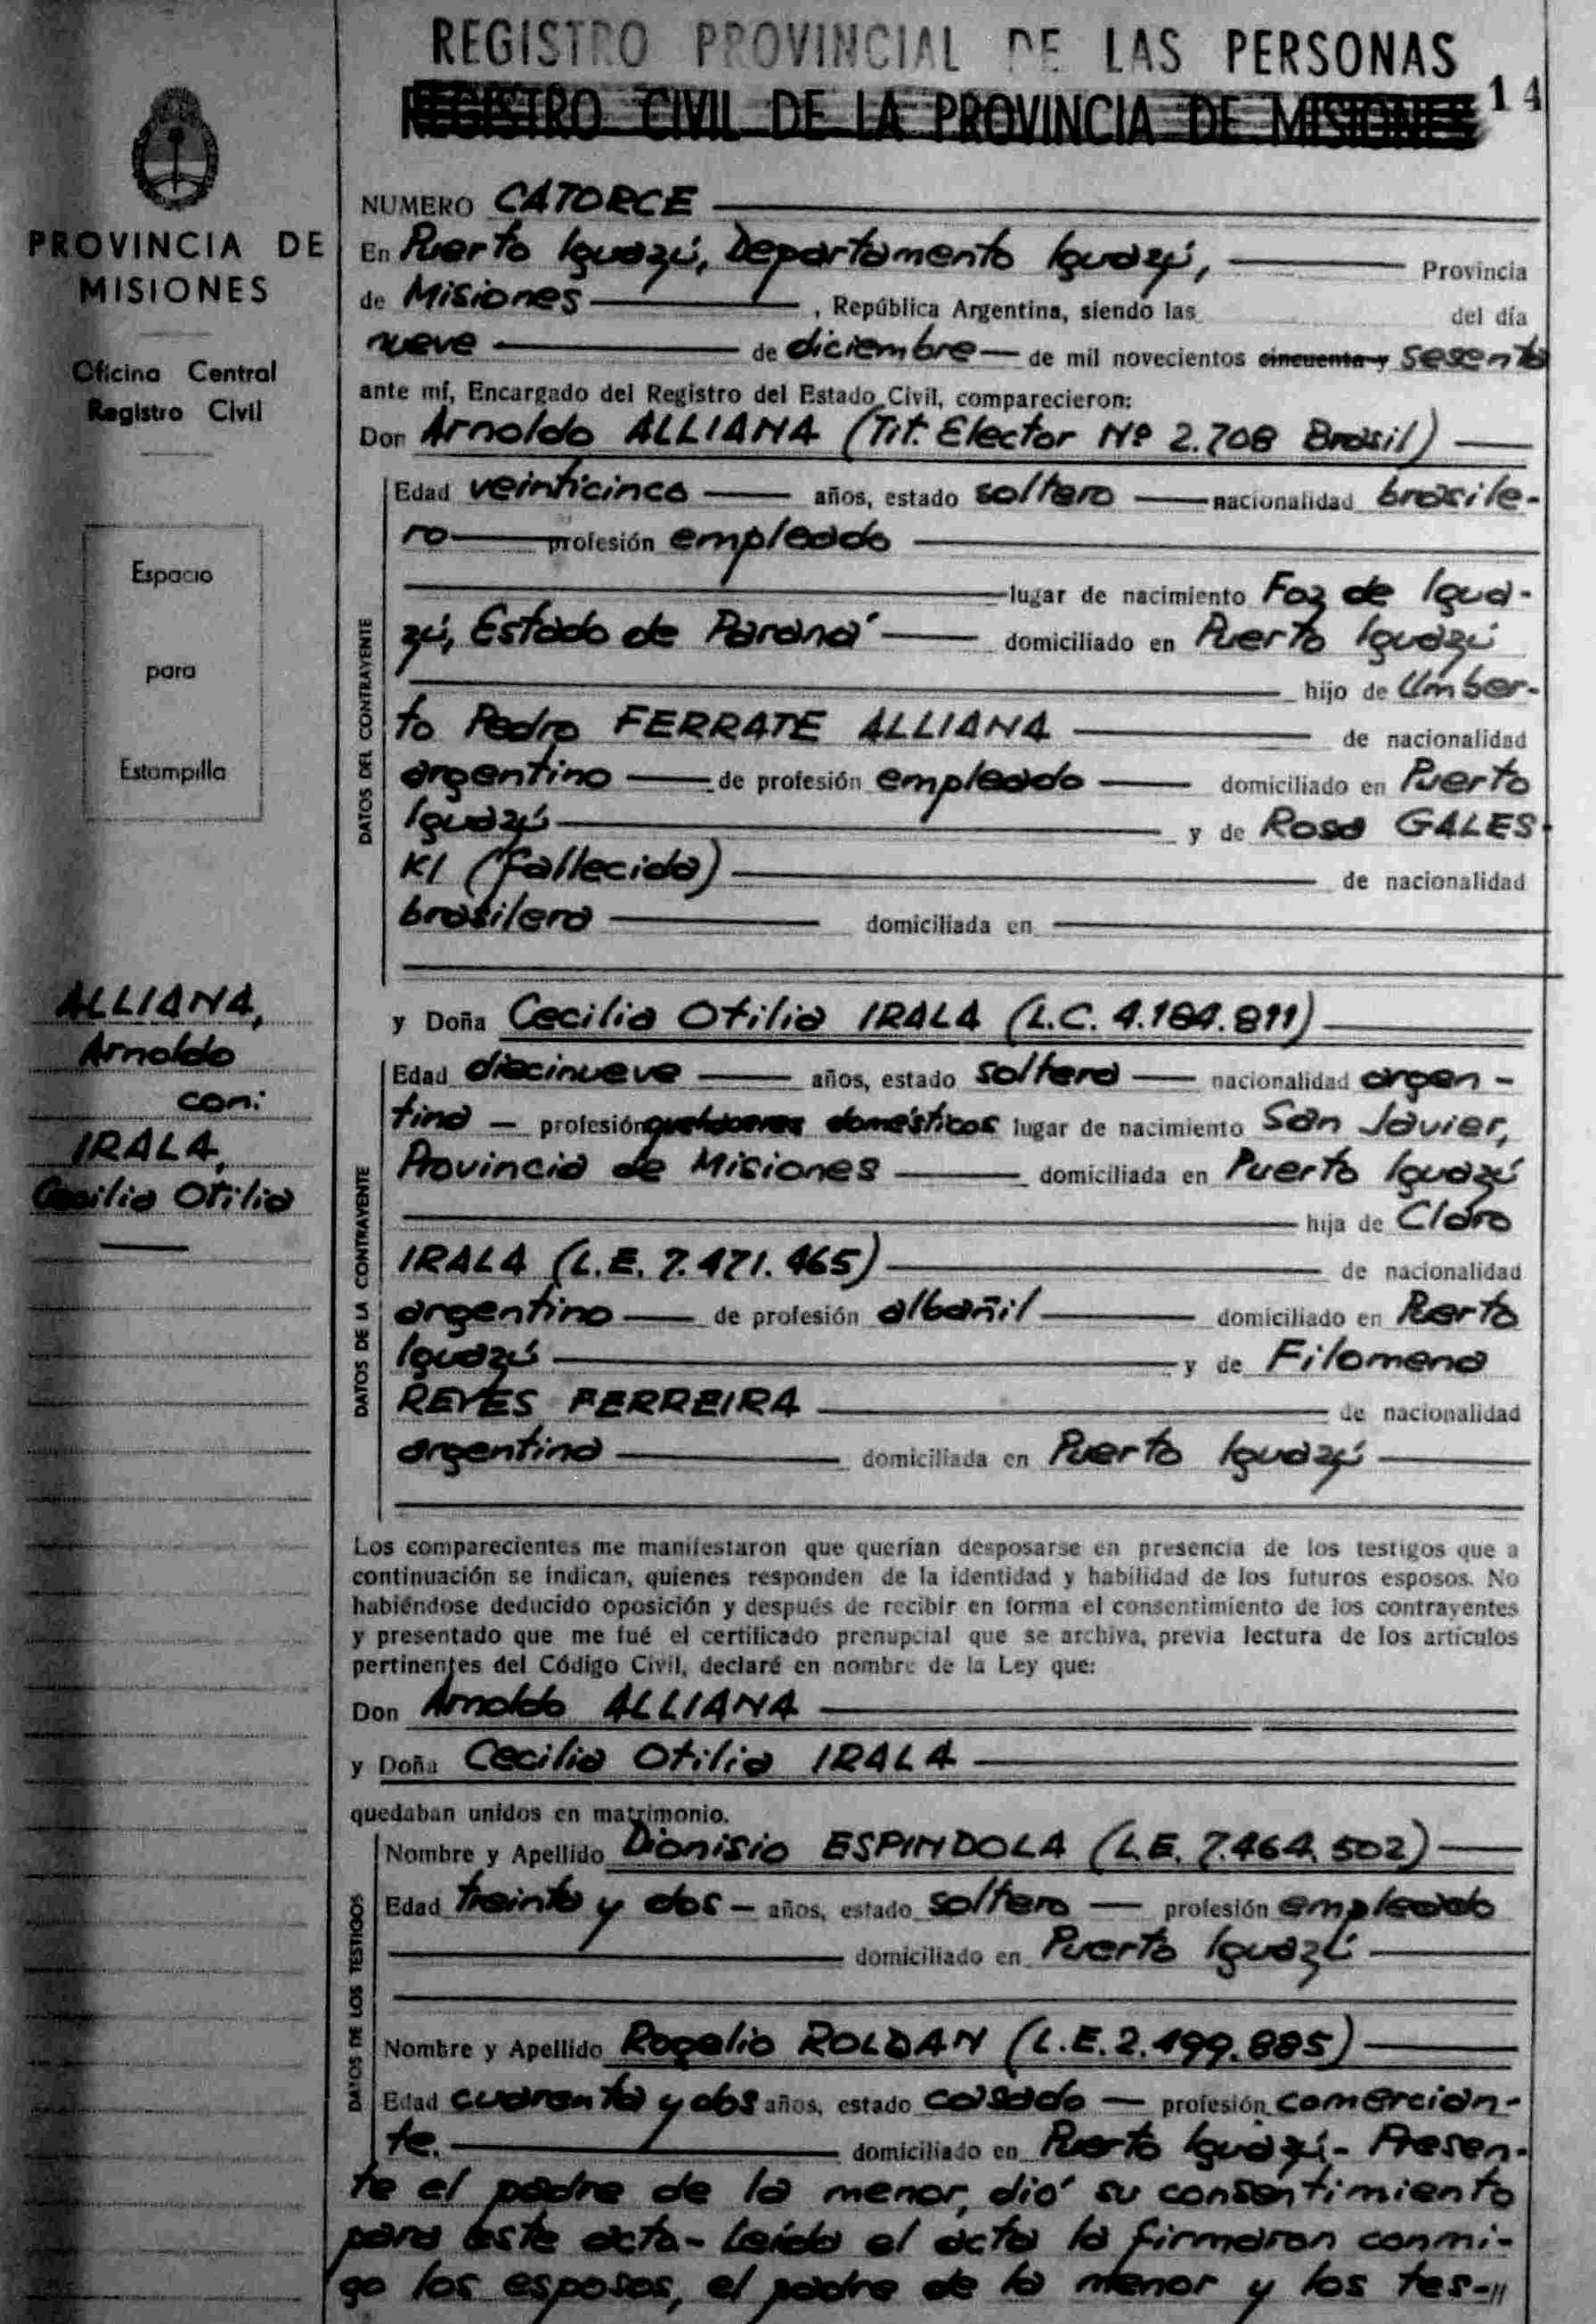 REGISTRO PROVINCIAL DE LAS PERSONAS
REGISTRO CIVIL DE LA PROVINCIA DE MISIONES 14
PROVINCIA DE
MISIONES
Oficina Central
Registro Civil
Espacio
para
Estampilla
ALLIANA,
Arnoldo
con:
IRALA,
Cecilia Otilia
NUMERO CATORCE
En Puerto Iguazú, Departamento Iguazú, Provincia
de Misiones , República Argentina, siendo las del día
nueve de diciembre de mil novecientos cincuenta y sesenta
ante mí, Encargado del Registro del Estado Civil, comparecieron:
Don Arnoldo ALLIANA (Tit. Elector Nº 2.708 Brasil)
DATOS DEL CONTRAYENTE
Edad veinticinco años, estado soltero nacionalidad brasile-
ro profesión empleado
lugar de nacimiento Foz de Igua-
zú, Estado de Paraná domiciliado en Puerto Iguazú
hijo de Umber-
to Pedro FERRATE ALLIANA de nacionalidad
argentino de profesión empleado domiciliado en Puerto
Iguazú y de Rosa GALES
KI (fallecida) de nacionalidad
brasilera domiciliada en
y Doña Cecilia Otilia IRALA (L.C. 4.184.811)
DATOS DE LA CONTRAYENTE
Edad diecinueve años, estado soltera nacionalidad argen-
tina profesión quehaceres domésticos lugar de nacimiento San Javier,
Provincia de Misiones domiciliada en Puerto Iguazú
hija de Claro
IRALA (L.E. 7.471.465) de nacionalidad
argentino de profesión albañil domiciliado en Puerto
Iguazú y de Filomena
REYES FERREIRA de nacionalidad
argentina domiciliada en Puerto Iguazú
Los comparecientes me manifestaron que querían desposarse en presencia de los testigos que a
continuación se indican, quienes responden de la identidad y habilidad de los futuros esposos. No
habiéndose deducido oposición y después de recibir en forma el consentimiento de los contrayentes
y presentado que me fué el certificado prenupcial que se archiva, previa lectura de los artículos
pertinentes del Código Civil, declaré en nombre de la Ley que:
Don Arnoldo ALLIANA
y Doña Cecilia Otilia IRALA
quedaban unidos en matrimonio.
DATOS DE LOS TESTIGOS
Nombre y Apellido Dionisio ESPINDOLA (L.E. 7.464.502)
Edad treinta y dos años, estado soltero profesión empleado
domiciliado en Puerto Iguazú
Nombre y Apellido Rogelio ROLDAN (L.E. 2.499.885)
Edad cuarenta y dos años, estado casado profesión comercian-
te. domiciliado en Puerto Iguazú- Presen-
te el padre de la menor, dió su consentimiento
para este acto- Leída el acta la firmaron conmi-
go los esposos, el padre de la menor y los tes-//